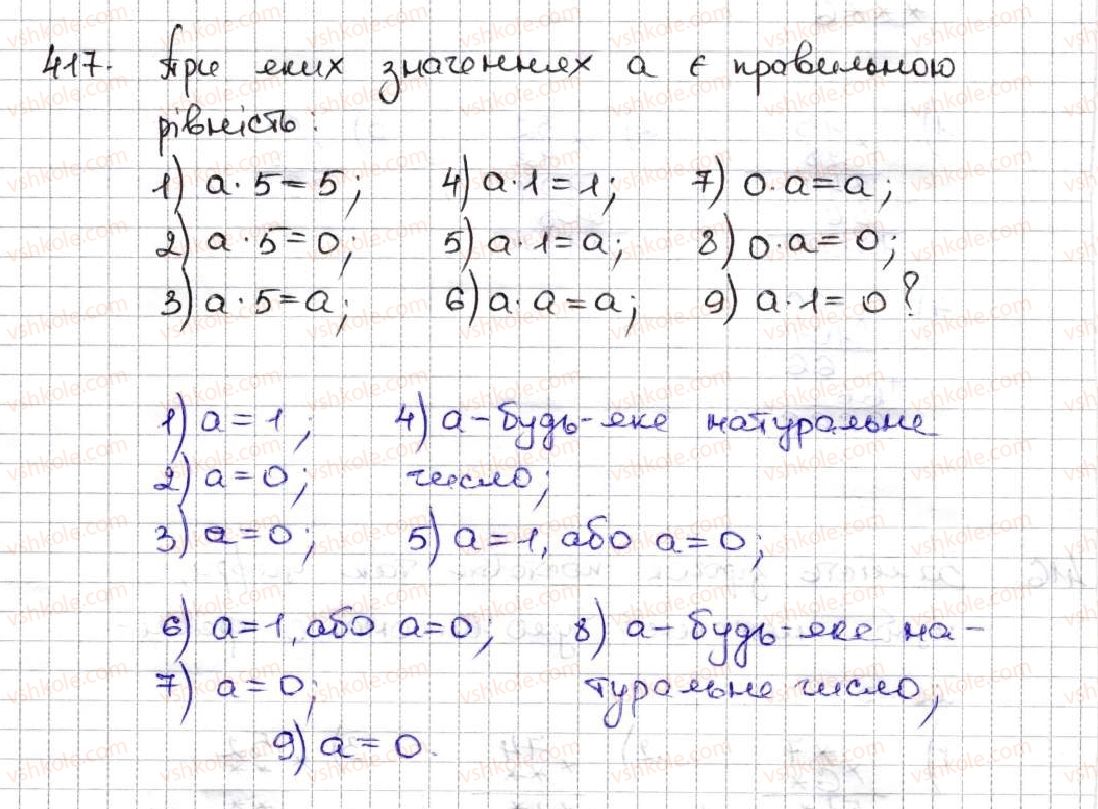 417. При яких значеннях a є правильною
рівність:
1) a·5=5; 4) a·1=1; 7) 0·a=a;
2) a·5=0; 5) a·1=a; 8) 0·a=0;
3) a·5=a; 6) a·a=a; 9) a·1=0?
1) a=1; 4) a-будь-яке натуральне
2) a=0; число;
3) a=0; 5) a=1, або a=0;
6) a=1, або a=0; 8) a-будь-яке на-
7) a=0; туральне число;
9) a=0.